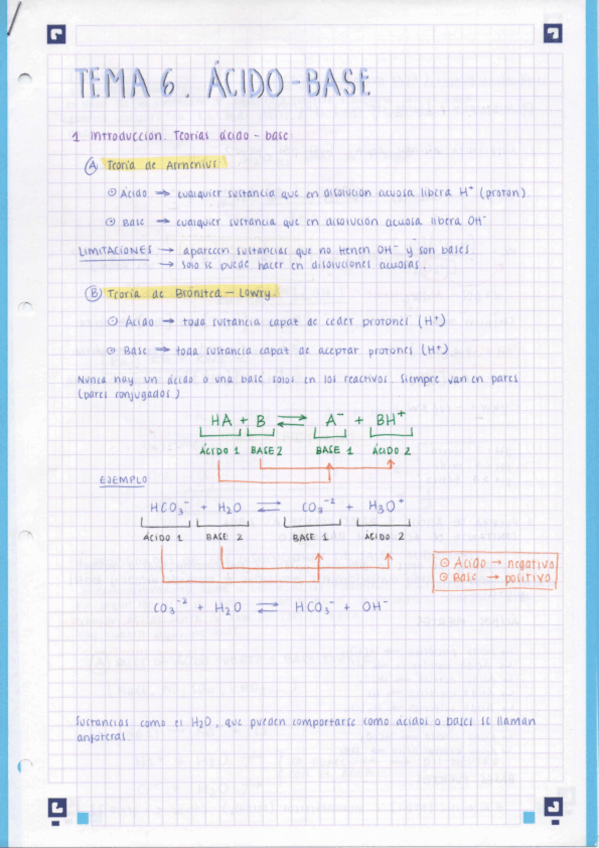 TEMA 6. ÁCIDO-BASE
1 Introducción. Teorías ácido-base
A Teoría de Arrhenius.
Ácido → cualquier sustancia que en disolución acuosa libera H⁺ (protón).
Base → cualquier sustancia que en disolución acuosa libera OH⁻
LIMITACIONES → aparecen sustancias que no tienen OH⁻ y son bases.
→ solo se puede hacer en disoluciones acuosas.
B Teoría de Brönsted-Lowry.
Ácido → toda sustancia capaz de ceder protones (H⁺)
Base → toda sustancia capaz de aceptar protones (H⁺)
Nunca hay un ácido o una base solos en los reactivos. Siempre van en pares
(pares conjugados.)
HA + B ⇌ A⁻ + BH⁺
ÁCIDO 1 BASE 2 BASE 1 ÁCIDO 2
EJEMPLO
HCO₃⁻ + H₂O ⇌ CO₃⁻² + H₃O⁺
ÁCIDO 1 BASE 2 BASE 1 ÁCIDO 2
Ácido → negativo
Base → positivo
CO₃⁻² + H₂O ⇌ HCO₃⁻ + OH⁻
Sustancias como el H₂O, que pueden comportarse como ácidos o bases se llaman
anfóteras.